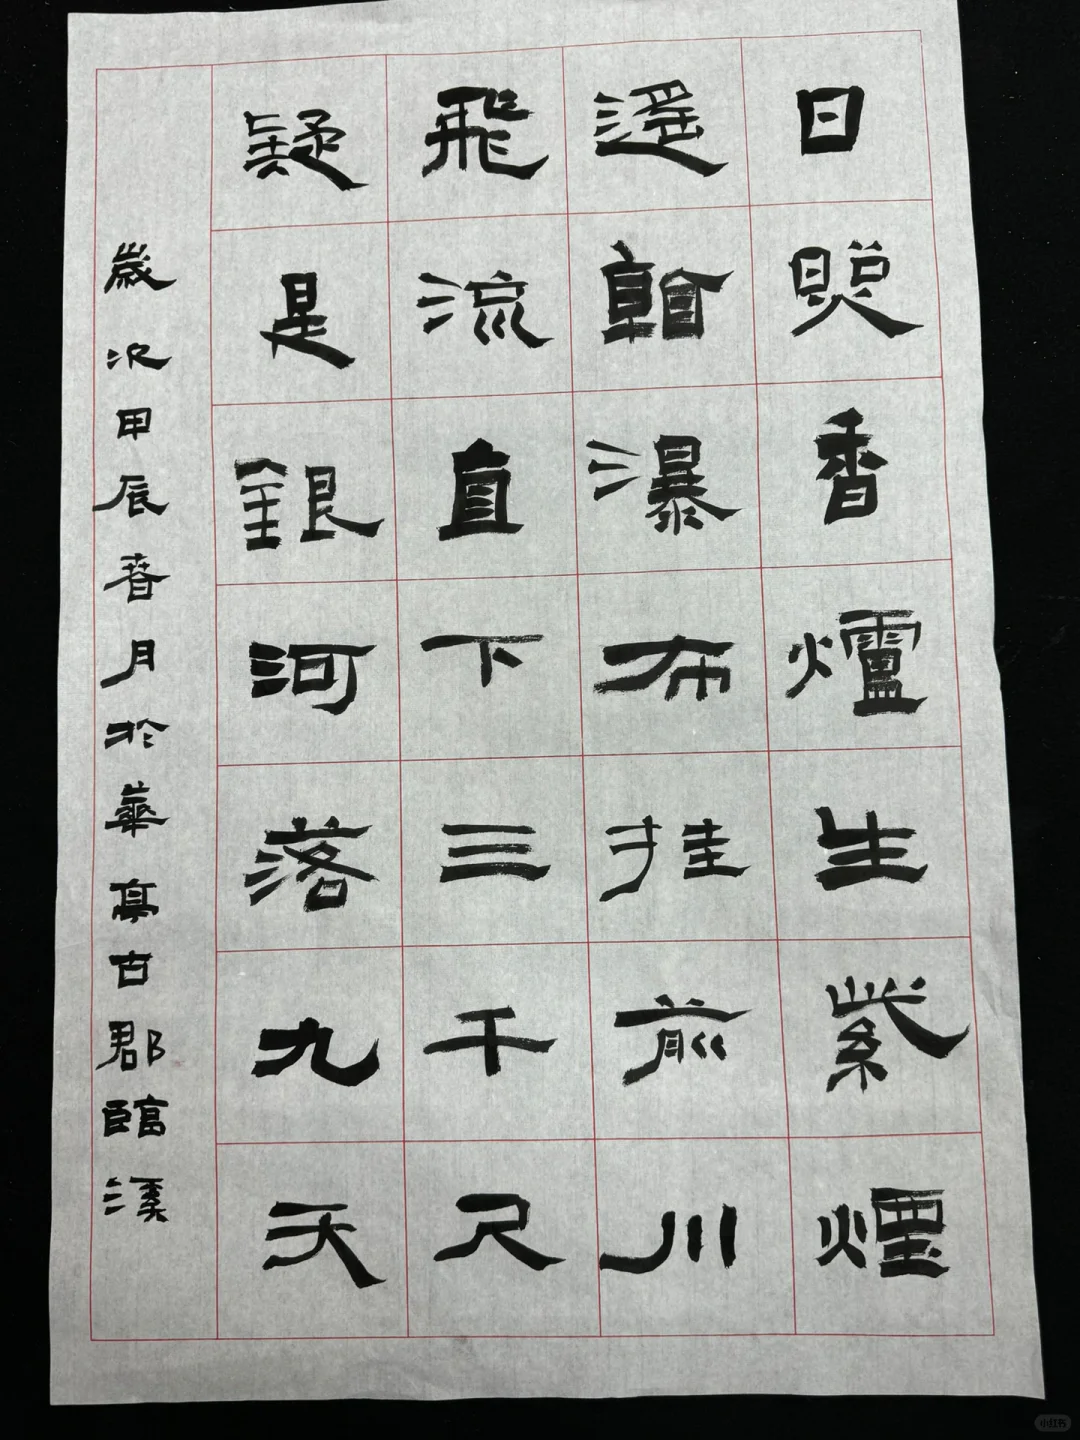 日照香爐生紫煙
遙看瀑布挂前川
飛流直下三千尺
疑是銀河落九天
歲次甲辰春月於華亭古郡臨溪
小红书